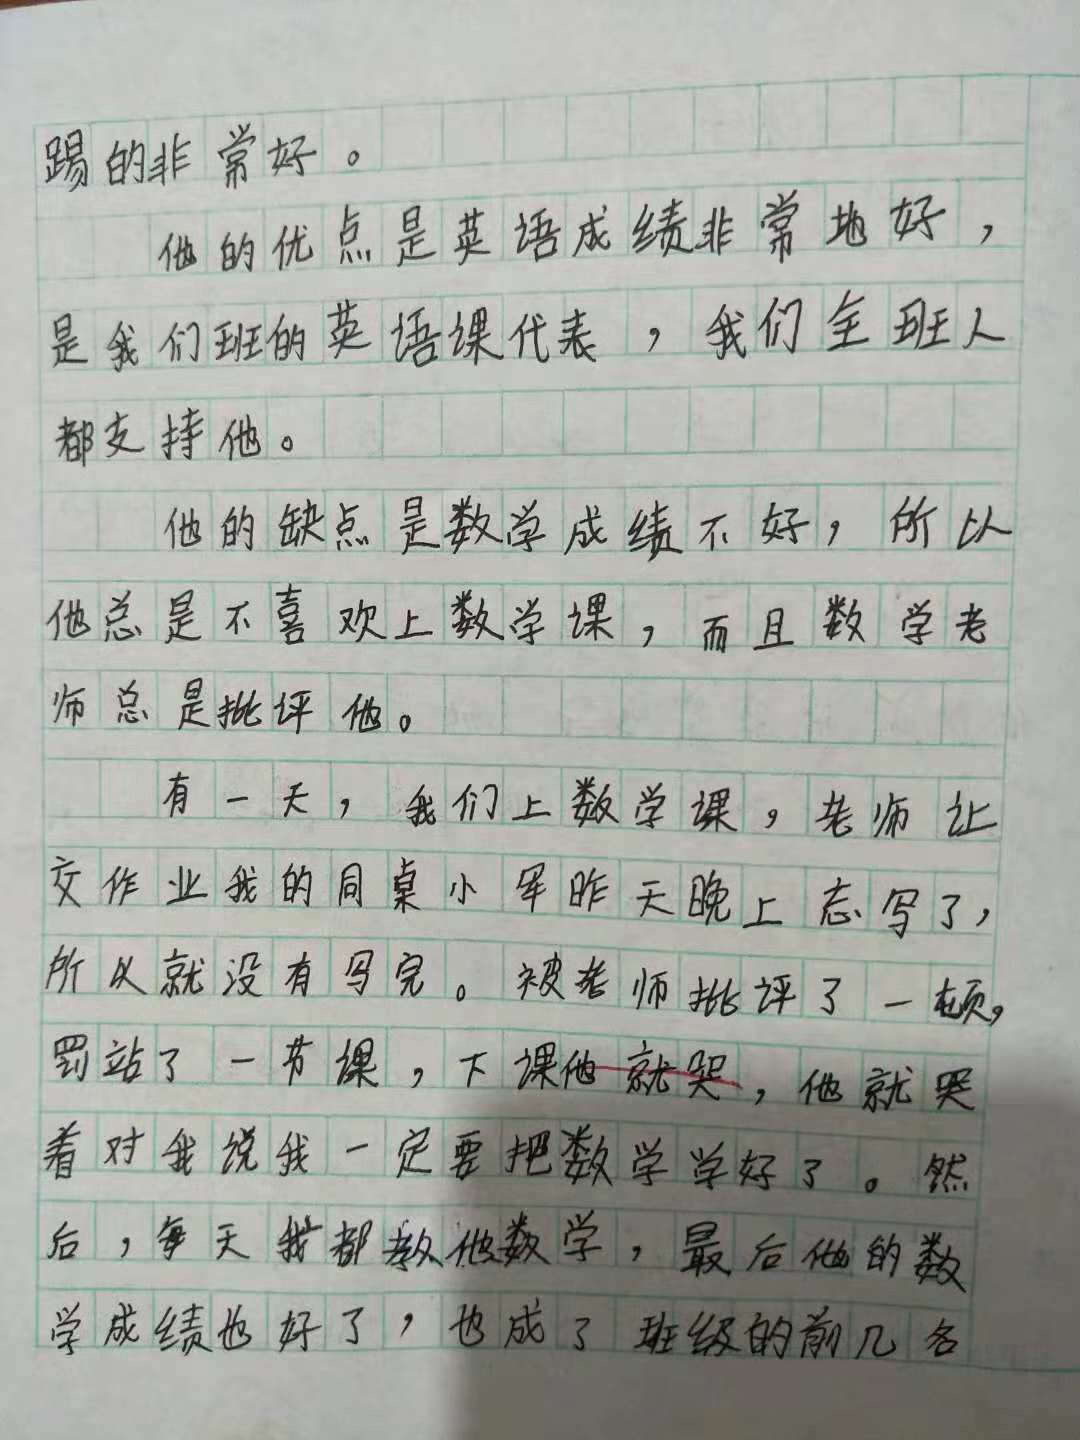 踢的非常好。
他的优点是英语成绩非常地好，
是我们班的英语课代表，我们全班人
都支持他。
他的缺点是数学成绩不好，所以
他总是不喜欢上数学课，而且数学老
师总是批评他。
有一天，我们上数学课，老师让
交作业我的同桌小军昨天晚上忘写了，
所以就没有写完。被老师批评了一顿，
罚站了一节课，下课他就哭，他就哭
着对我说我一定要把数学学好了。然
后，每天我都教他数学，最后他的数
学成绩也好了，也成了班级的前几名